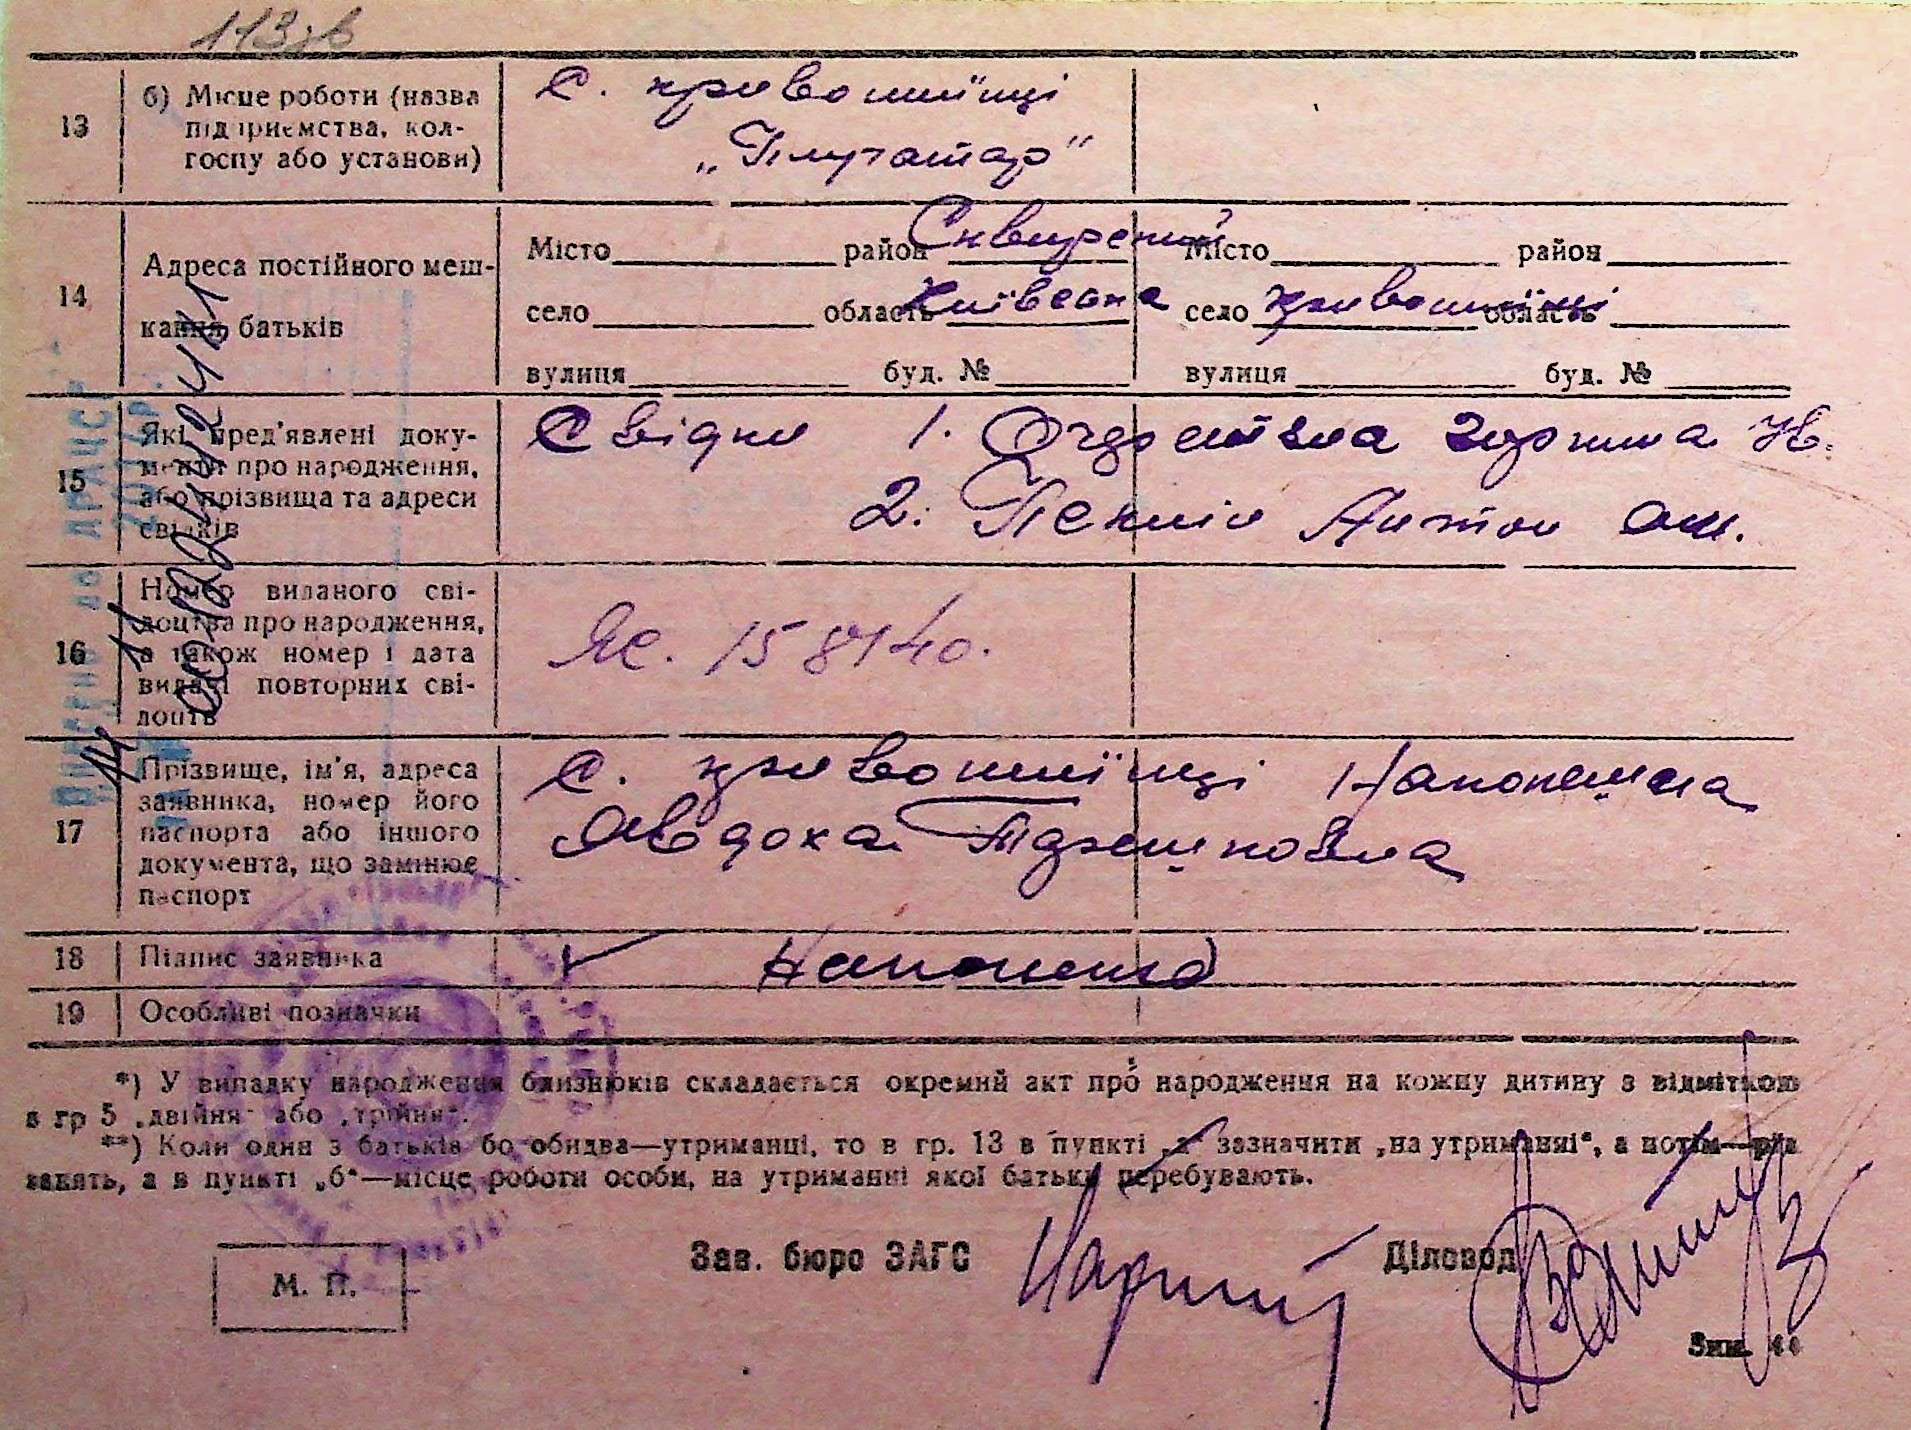 113зв
13
б) Місце роботи (назва
підприємства, кол-
госпу або установи)
с. кривошиїнці
„Плугатар"
14
Адреса постійного меш-
кання батьків
Місто район Сквирский Місто район
село область Київська село кривошиїнці область
вулиця буд. № вулиця буд. №
15
Які пред'явлені доку-
менти про народження,
або прізвища та адреси
свідків
Свідки 1.
2. Антон
16
Номер виданого сві-
доцтва про народження,
а також номер і дата
видачі повторних сві-
доцтв
ЯЄ. 158140.
17
Прізвище, ім'я, адреса
заявника, номер його
паспорта або іншого
документа, що замінює
паспорт
с. кривошиїнці
Явдоха
18
Підпис заявника
19
Особливі позначки
*) У випадку народження близнюків складається окремий акт про народження на кожну дитину з відміткою
в гр 5 „двійня" або „трійня".
**) Коли один з батьків бо обидва—утриманці, то в гр. 13 в пункті „а" зазначити „на утриманні", а потім—рід
занять, а в пункті „б"—місце роботи особи, на утриманні якої батьки перебувають.
Зав. бюро ЗАГС
Діловод
М. П.